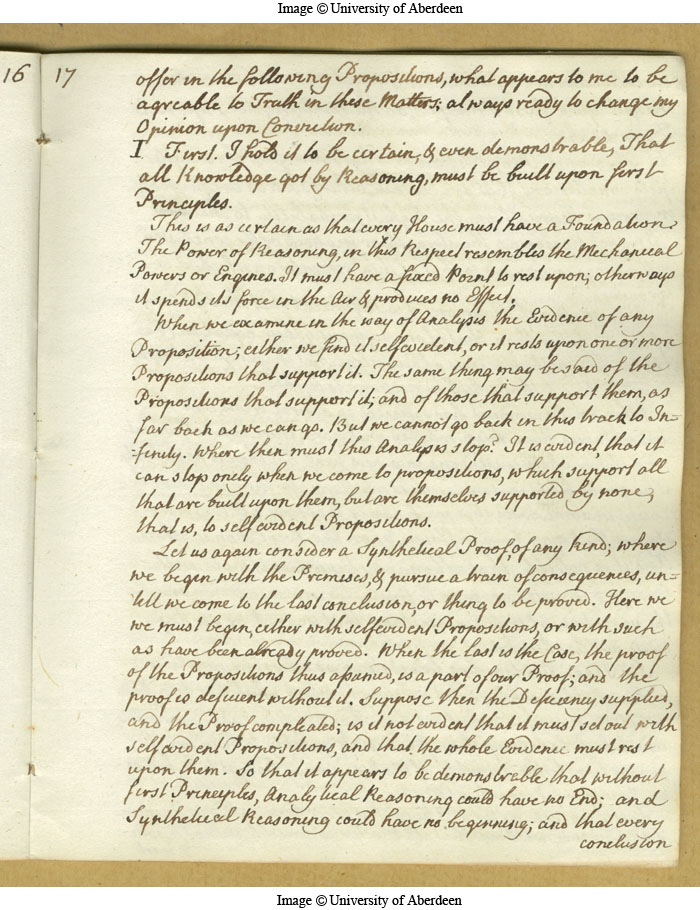 Image © University of Aberdeen
16
17
offer in the following Propositions, what appears to me to be
agreable to Truth in these Matters; always ready to change my
Opinion upon Conviction.
I First. I hold it to be certain, & even demonstrable, That
all Knowledge got by Reasoning, must be built upon first
Principles.
This is as certain as that every House must have a Foundation.
The Power of Reasoning, in this Respect resembles the Mechanical
Powers or Engines. It must have a fixed Point to rest upon; otherways
it spends its force in the Air & produces no Effect.
When we examine in the way of Analysis the Evidence of any
Proposition; either we find it selfevident, or it rests upon one or more
Propositions that support it. The same thing may be said of the
Propositions that support it; and of those that support them, as
far back as we can go. But we cannot go back in this track to In-
-finity. Where then must this Analysis stop? It is evident, that it
can stop onely when we come to propositions, which support all
that are built upon them, but are themselves supported by none,
that is, to selfevident Propositions.
Let us again consider a Synthetical Proof, of any kind; where
we begin with the Premises, & pursue a train of consequences, un=
till we come to the last conclusion, or thing to be proved. Here we
we must begin, either with selfevident Propositions, or with such
as have been already proved. When the last is the Case, the proof
of the Propositions thus assumed, is a part of our Proof; and the
proof is deficient without it. Suppose then the Deficiency supplied,
and the Proof compleated; is it not evident that it must set out with
selfevident Propositions, and that the whole Evidence must rest
upon them. So that it appears to be demonstrable that without
first Principles, Analytical Reasoning could have no End; and
Synthetical Reasoning could have no beginning; and that every
conclusion
Image © University of Aberdeen